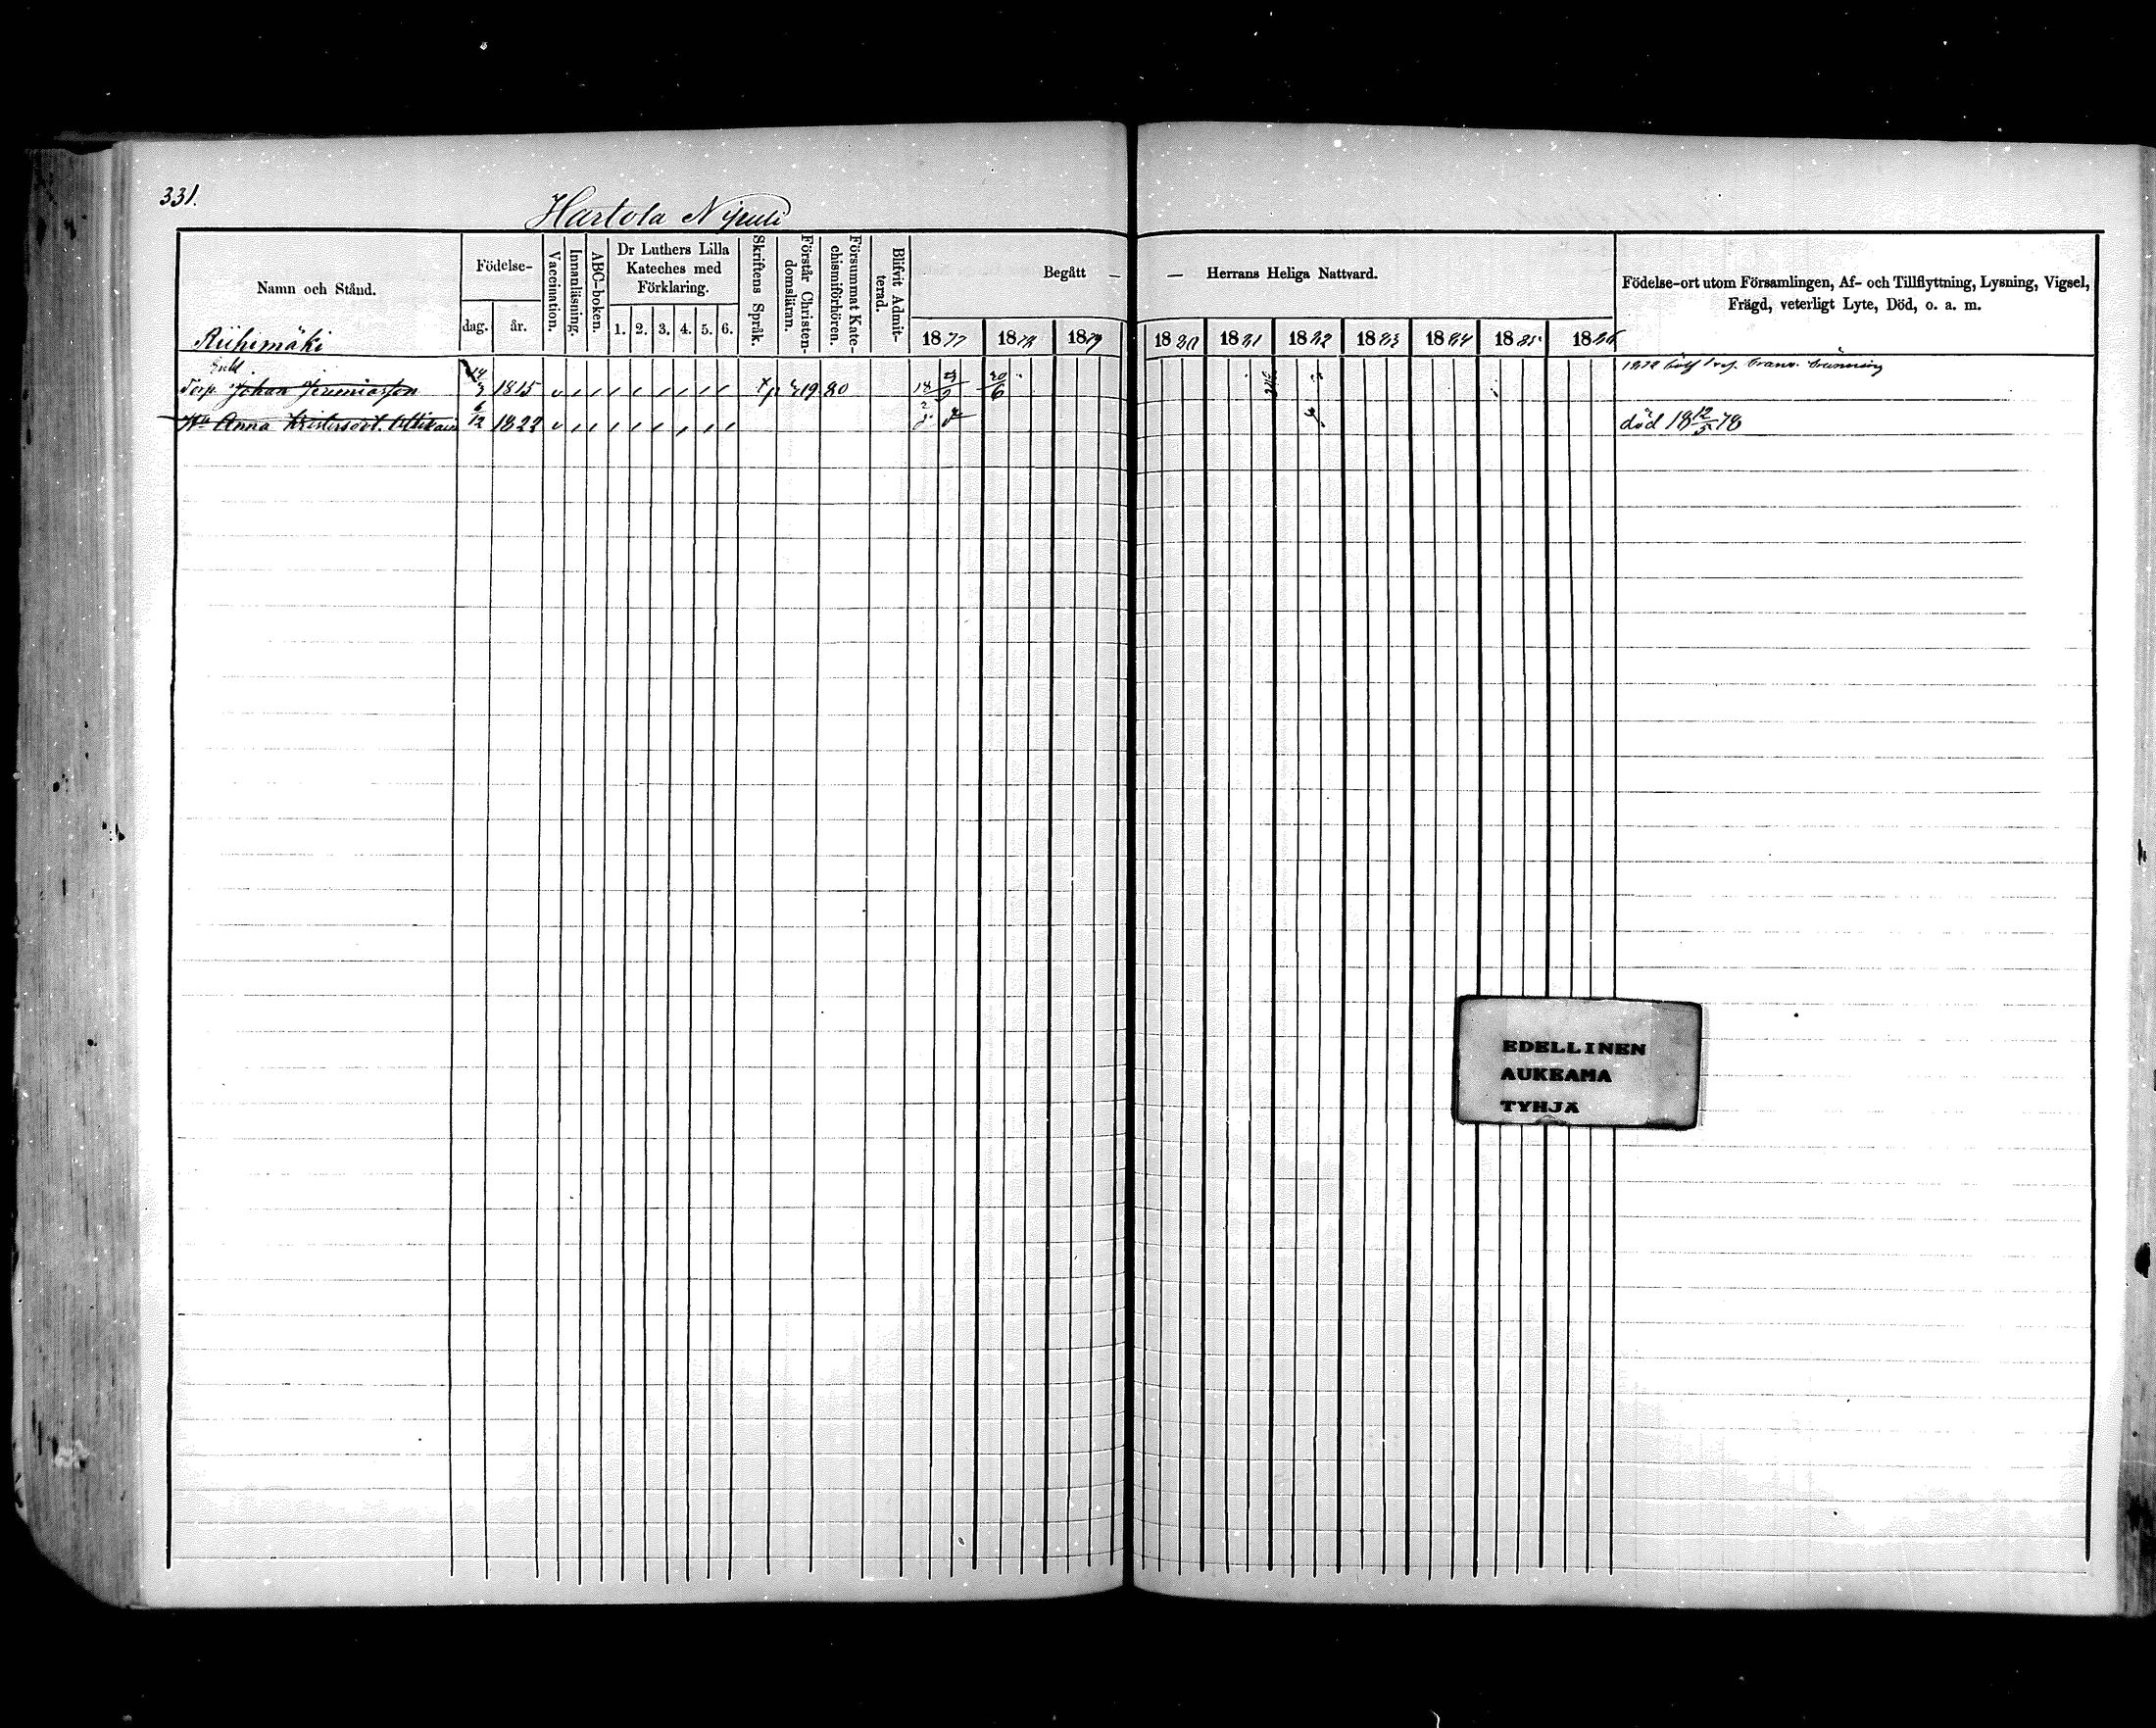 331.
Hartola Nipuli
Namn och Stånd.
Födelse-
dag.
år.
Vaccination.
Innanläsning.
ABC-boken.
Dr Luthers Lilla
Kateches med
Förklaring.
1. 2. 3. 4. 5. 6.
Skriftens Språk.
Förstår Christen-
domsläran.
Försummat Kate-
chismiförhören.
Blifvit Admit-
terad.
Begått —
— Herrans Heliga Nattvard.
1877 1878 1879 1880 1881 1882 1883 1884 1885 1886
Födelse-ort utom Församlingen, Af- och Tillflyttning, Lysning, Vigsel,
Frägd, veterligt Lyte, Död, o. a. m.
Riihimäki
Torp. Johan Jeremiasson 1815 80 20/6
Hu Anna 6/12 1822 död 18 12/5 78
EDELLINEN
AUKEAMA
TYHJÄ